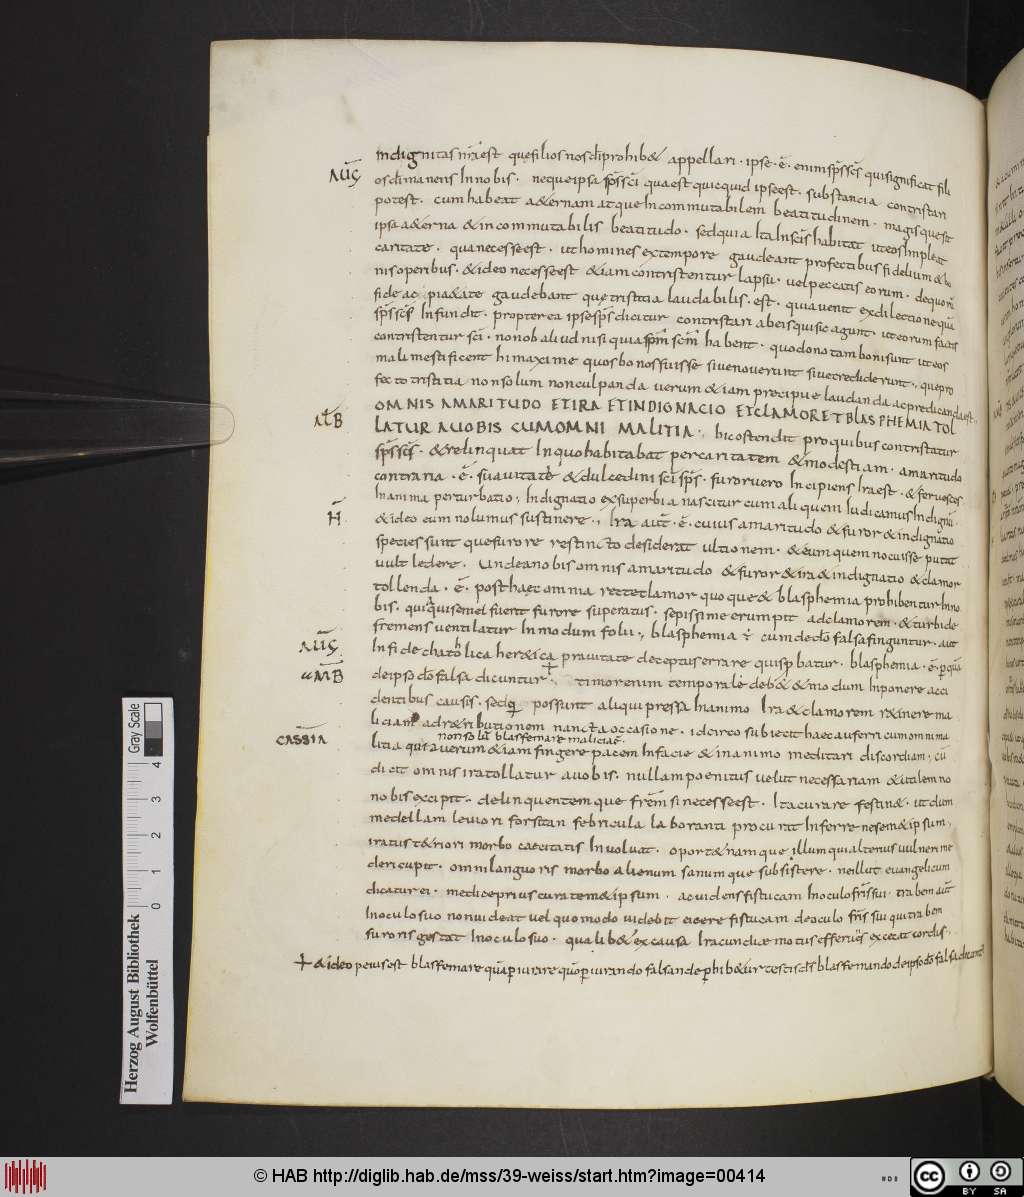 indignitas nr̄a est que filios nos dī prohibet appellari · ipse · ē · enim sp̄s sc̄s qui significat fili
AUḠ
os dī manens In nobis · neque ipsa sp̄s sc̄i qua est quicquid ipse est · substancia contristari
potest · cum habeat aeternam atque Incommutabilem beatitudinem · magisque est
ipsa aeterna et incommutabilis beatitudo · sed quia Ita In sc̄is habitat ut eos Impleat
caritate · qua necesse est · ut homines ex tempore gaudeant profectibus fidelium et bo
nis operibus · et ideo necesse est etiam contristentur lapsu · vel peccatis eorum · de quorū
fide ac pietate gaudebant que tristitia laudabilis · est · quia venit ex dilectione quā
sp̄s sc̄s Infundit · propterea ipse sp̄s dicitur contristari ab eis qui sic agunt · ut eorum factis
contristentur sc̄i · non ob aliud nisi quia sp̄m sc̄m habent · quo dono tam boni sunt ut eos
mali mestificent hi maxime quos bonos fuisse sive noverunt sive crediderunt · que pro
fecto tristitia non solum non culpanda verum etiam precipue laudanda ac predicanda est ·
OMNIS AMARITUDO ET IRA ET INDIGNACIO ET CLAMOR ET BLASPHEMIA TOL
AT̄B
LATUR A UOBIS CUM OMNI MALITIA · hic ostendit pro quibus contristatur
sp̄s sc̄s · et relinquat In quo habitabat per caritatem et modestiam · amaritudo
contraria · ē · suavitate et dulcedini sc̄i sp̄s · furor vero Incipiens Ira est · et fervescens
In anima perturbatio · Indignatio ex superbia nascitur cum aliquem Iudicamus Indignū
H̄
et ideo eum nolumus sustinere · Ira aut̄ · ē · cuius amaritudo et furor et indignatio
species sunt que furore restincto desiderat ultionem · et eum quem nocuisse putat
vult ledere · Unde a nobis omnis amaritudo et furor et ira et indignatio et clamor
tollenda · ē · post haec omnia recte clamor quoque et blasphemia prohibentur In no
bis · quia qui semel fuerit furore superatus · sepissime erumpit ad clamorem · et turbide
fremens ventilatur In modum folii · blasphemia ē cum de dō falsa finguntur · aut
AUḠ
In fide chatholica heretica pravitate deceptus errare quis probatur · blasphemia · ē · per quā
AMB̄
de ipso dō falsa dicuntur · timorem temporale debet et modum Inponere acci
dentibus causis · sed quia possunt aliqui pressa In animo Ira et clamorem retinere ma
liciam ad retributionem nancta occasione · idcirco subiecit haec auferri cum omni ma
non solū blasfemare maliciae
CASSIA
litia que verum etiam fingere pacem In facie et in animo meditari discordiam · cū
dicit omnis ira tollatur a uobis · nullam poenitus velut necessariam et utalem no
nobis excipit · delinquentemque frēm si necesse est · Ita curare festinet · ut dum
medellam leviori forsitan febricula laboranti procurat Inferre nesemetipsum ·
iratus teteriori morbo caecitatis Involuat · oportet namque illum qui alterius vulneri me
dericupit · omni languoris morbo alienum sanumque subsistere · ne illut euangelicum
dicatur ei · medice prius cura temetipsum · ac videns fistucam In oculo frīs sui · trabem aut̄
In oculo suo non videat vel quomodo videbit eicere fistucam de oculo frīs sui qui trabem
furoris gestat In oculo suo · qualibet ex causa Iracundiae motus effervēs excecat cordis ·
et ideo peius est blasfemare quā periurare quō periurando falsa inde perhibetur testis dī blasfemando de ipso dō falsa dicantr̄
Herzog August Bibliothek
Wolfenbüttel
0 1 2 3 4
Gray Scale
© HAB http://diglib.hab.de/mss/39-weiss/start.htm?image=00414
cc BY SA